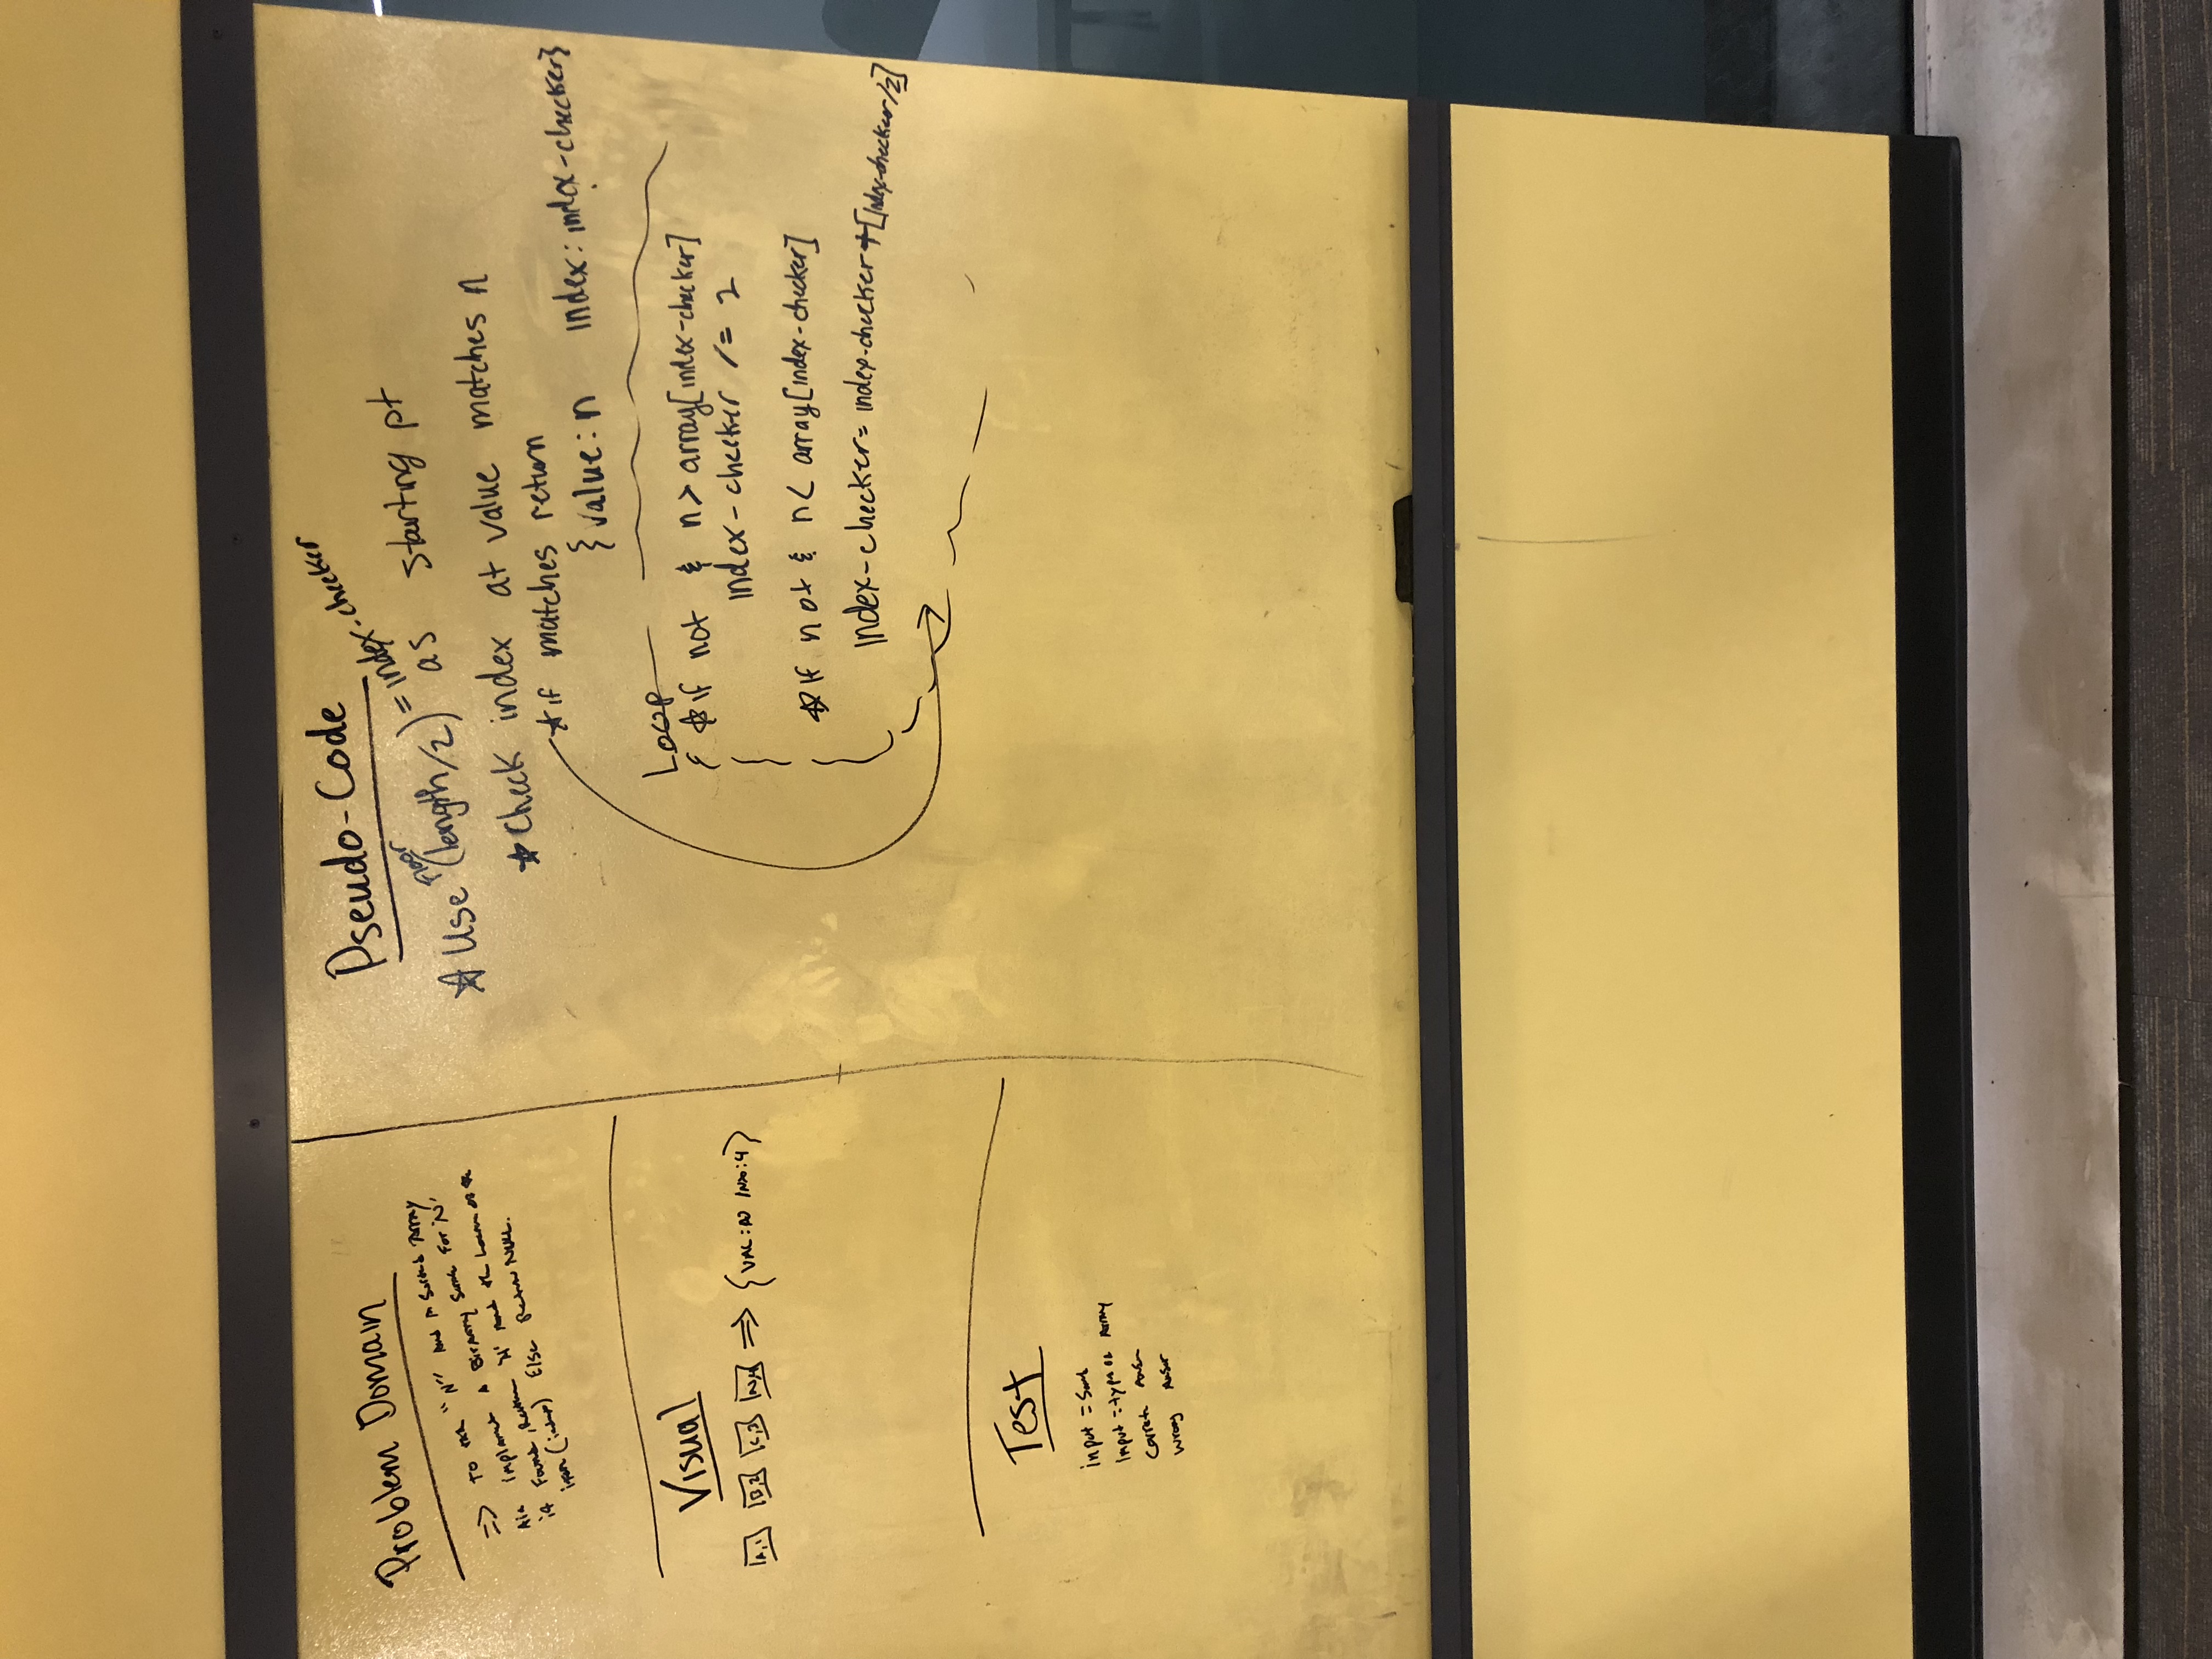 Problem Domain
=> To "N" And A Sorted Array
implement A Binary For 'N'
if Found, Return 'N' And the of the
item (index) Else Return NULL.
Visual
A,1 B,2 C,3 N,4 => {VAL:N IND:4}
Test
input =
input = type of Array
Correct
Wrong
Pseudo-Code
☆ Use Floor (length/2) = index-checker as starting pt
☆ Check index at value matches n
☆ if matches return
{ value: n index: index-checker}
Loop
{ ☆ if not & n > array[index-checker]
index-checker /= 2
☆ If not & n < array[index-checker]
index-checker = index-checker + [index-checker/2]